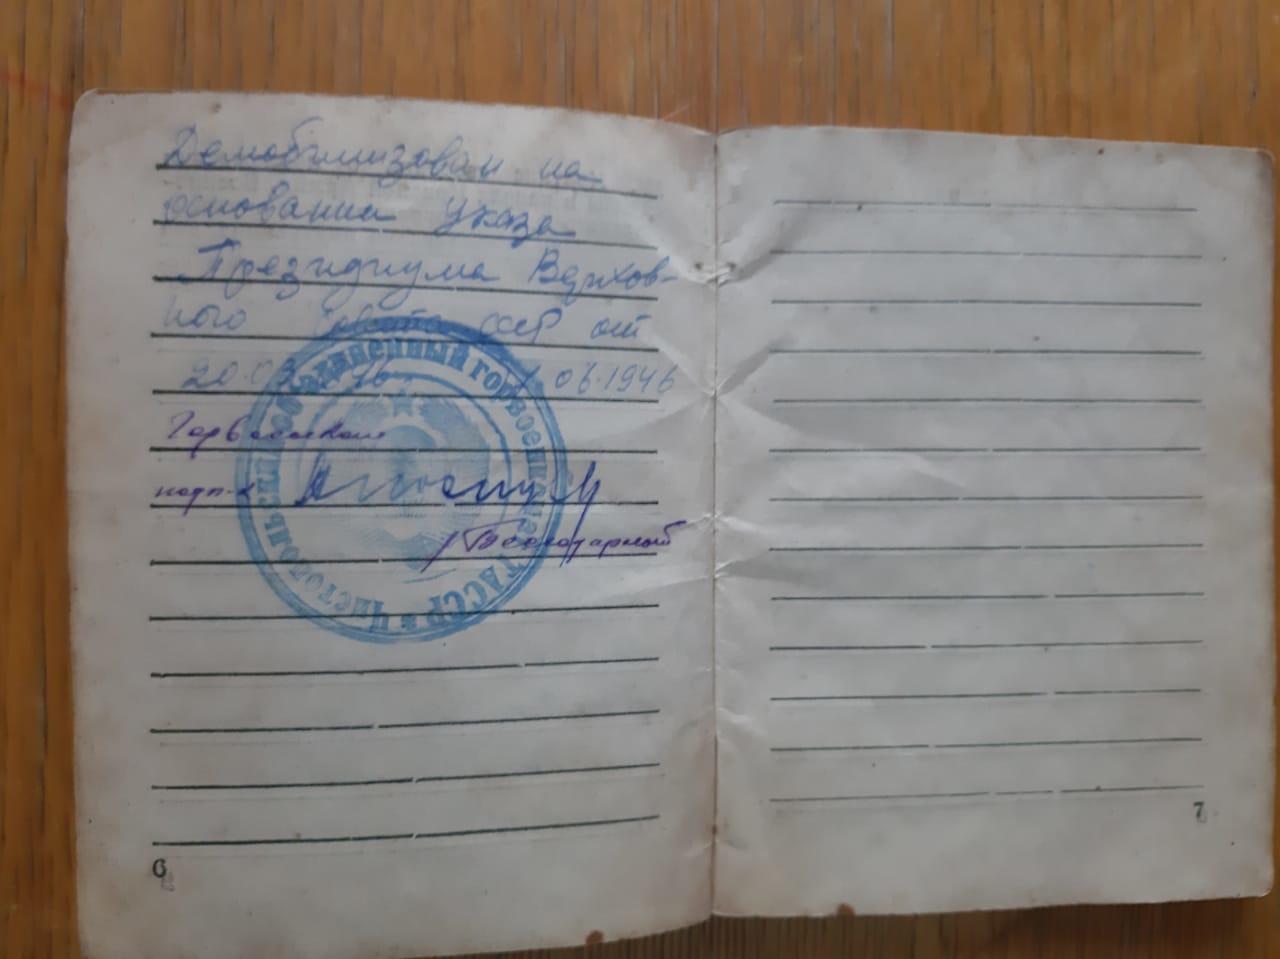 Демобилизован на
основании указа
Президиума Верхов-
ного Совета СССР от
20.03 46 06.1946
Горвоенком
подп-к
Чистопольский объединенный горвоенкомат ТАССР *
6
7